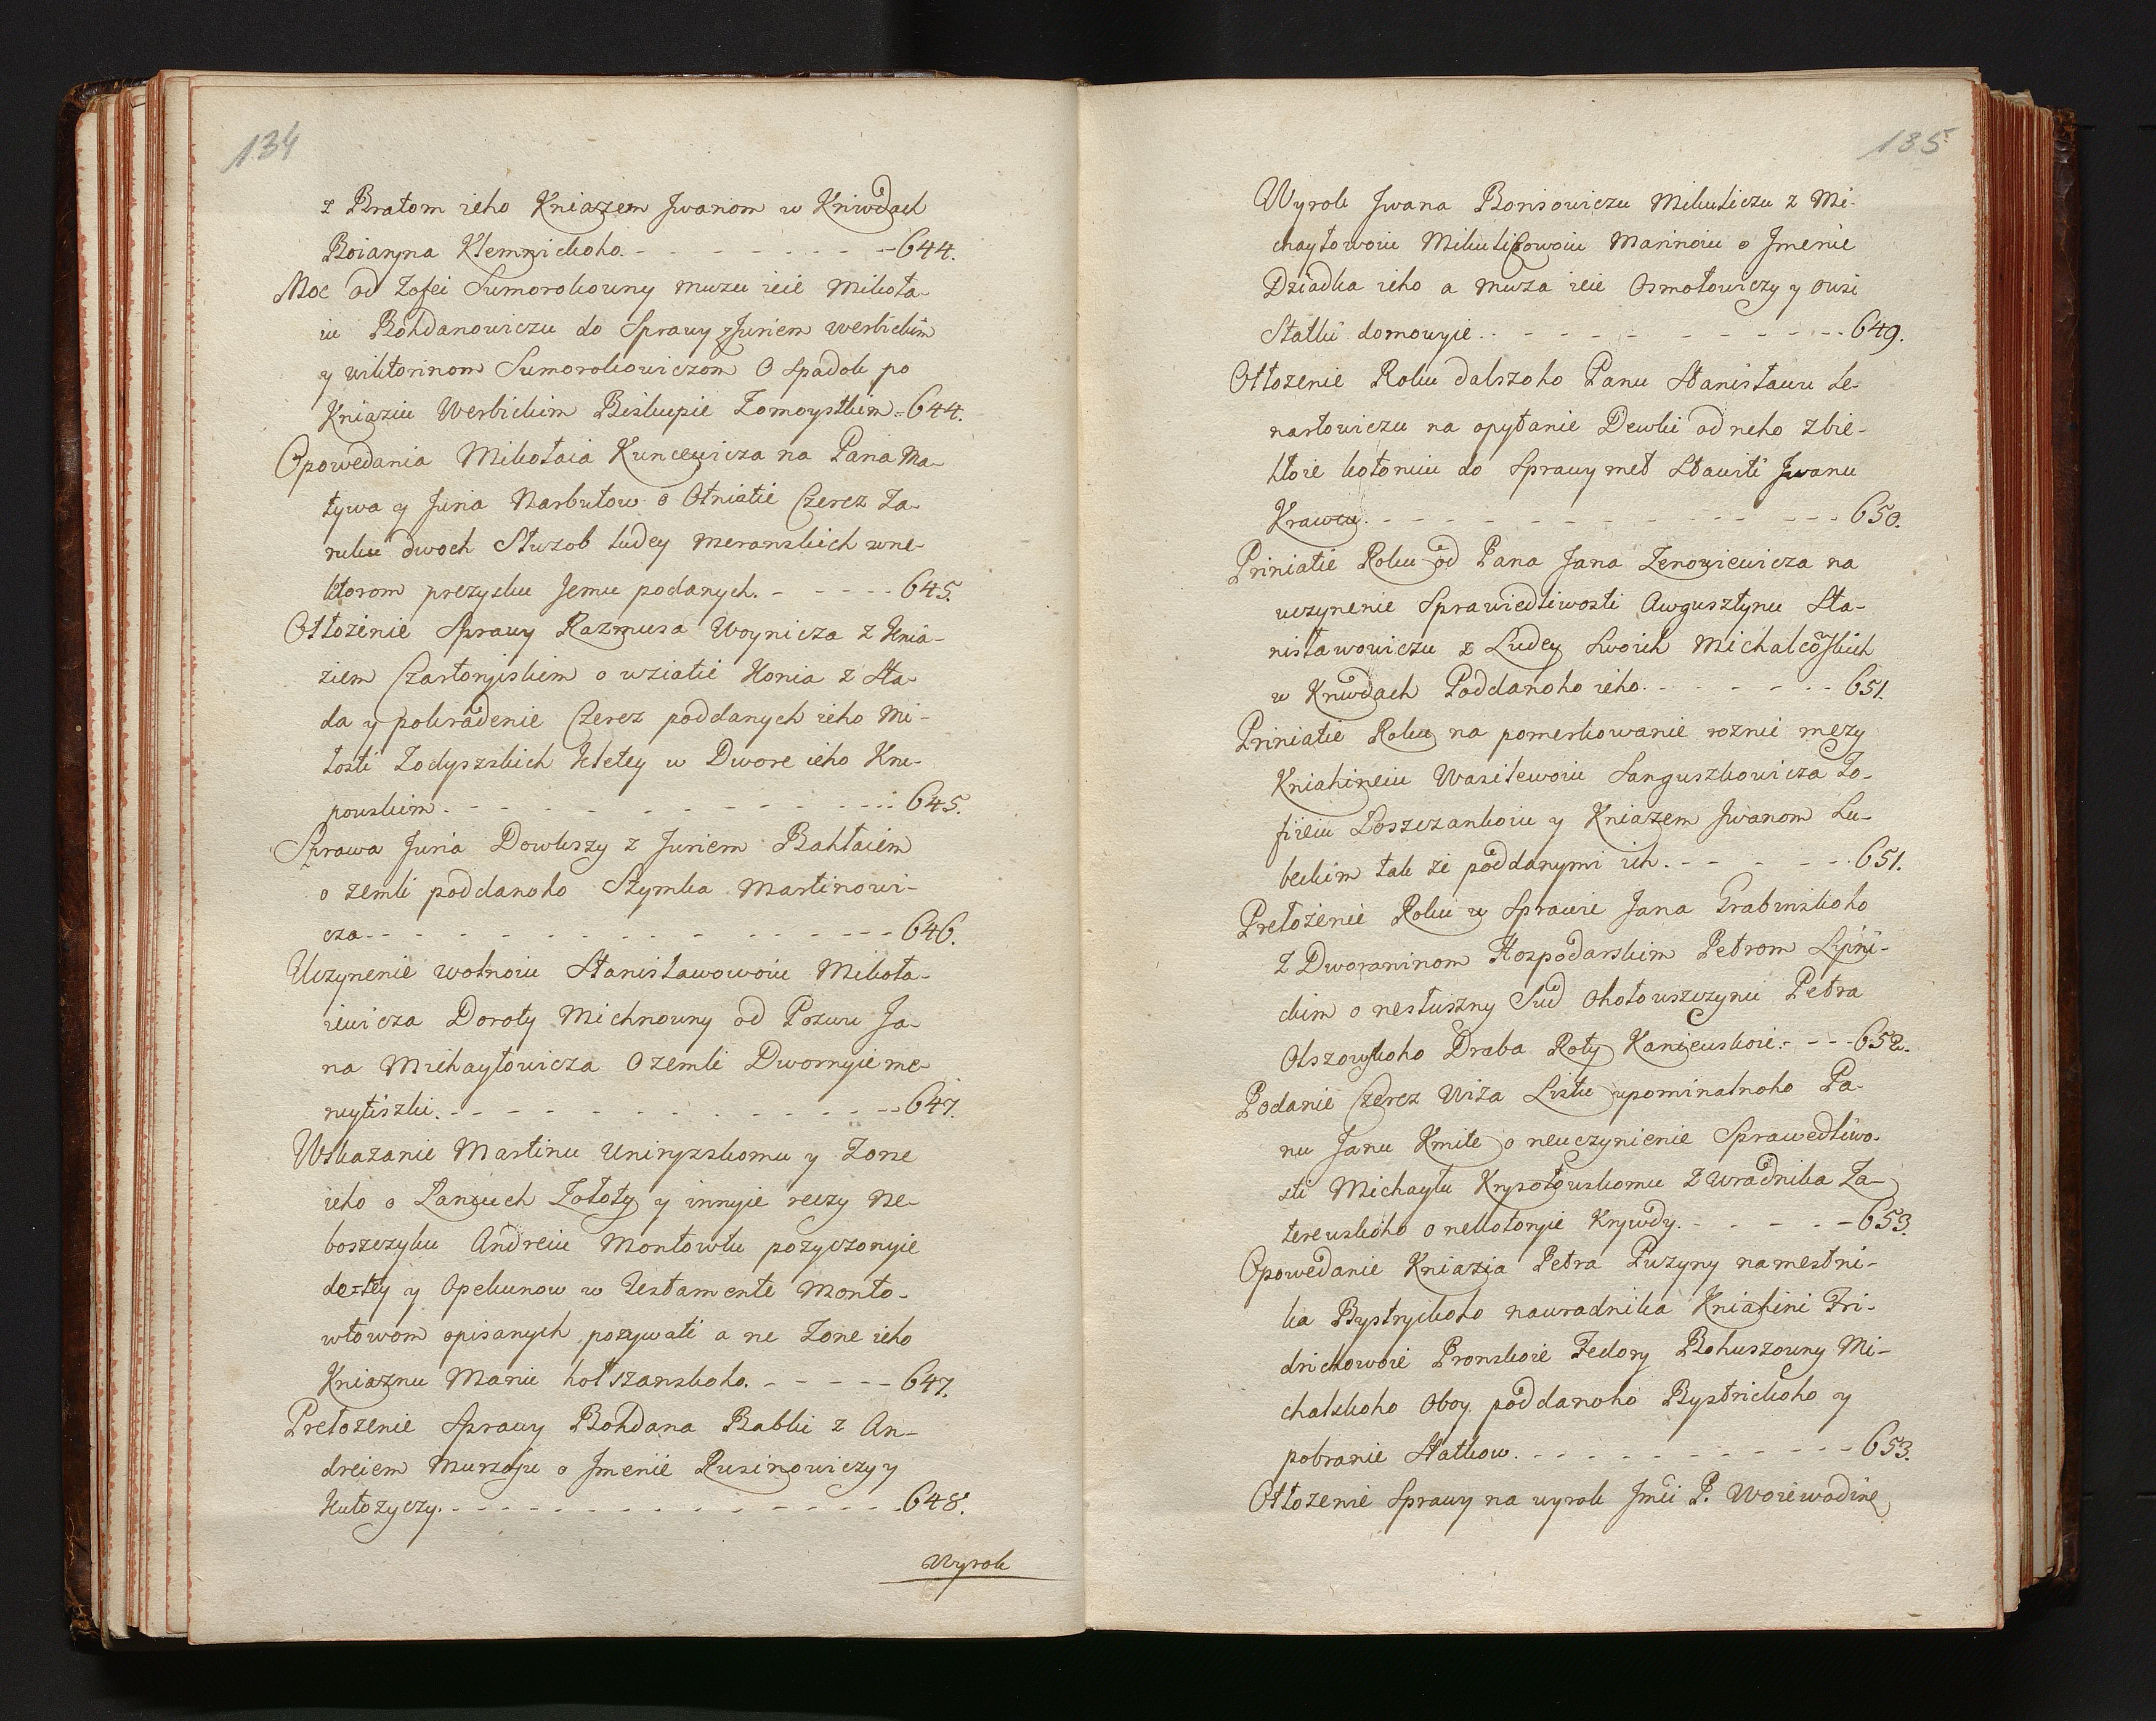 134
z Bratom ieho Kniazem Jwanom w Kriwdach
Boiaryna Klemnickoho. - - - - - - - - 644.
Moc od Zofei Sumorokowny muzu ieie Mikoła-
iu Bohdanowiczu do Sprawy z Juriem Werbickim
y Wiktorinom Sumorokowiczom O Spadok po
Kniaziu Werbickim Biskupie Zomoystkim - 644.
Opowedania Mikołaia Kuncewicza na Pana Ma-
tywa y Juria Narbutow o Otniatie Czerez Za-
ruku dwoch Słuzob ludey Meranskich wne-
ktorom prezysku Jemu podanych. - - - - - 645.
Otłożenie Sprawy Razmusa Woynicza z Knia-
ziem Czartoryiskim o wziatie Konia z Sta-
da y pokradenie Czerez poddanych ieho Mi-
łosti Zodyszskich Kletey w Dwore ieho Kru-
powskim. - - - - - - - - - - - 645.
Sprawa Juria Dowkszy z Juriem Bahłaiem
o zemli poddanoho Stymka Martinowi-
cza - - - - - - - - - - - - 646.
Uczynenie wolnoiu Stanisławowoiu Mikoła-
iewicza Doroty Michnowny od Pozwu Ja-
na Michayłowicza O zemli Dwornyie me-
reytiszki. - - - - - - - - - - - 647.
Wskazanie Martinu Uniryzskomu y Zone
ieho o Łancuch Zołoty y innyie reczy Ne-
boszczyku Andreiu Montowtu pozyczonyie
do=tey y Opekunow w Testamente Monto-
wtowom opisanych pozywati a ne Zone ieho
Kniaznu Mariu holszanskoho. - - - - - 647.
Prełozenie Sprawy Bohdana Babki z An-
dreiem Murzoju o Jmenie Rusinowiczy y
Kułozyczy. - - - - - - - - - - - 648.
Wyrok
135
Wyrok Jwana Borisowiczu Mikuliczu z Mi-
chayłowoiu Mikuliczowoiu Marinoiu o Jmenie
Dziadka ieho a muza ieie Osmołowiczy y owsi
Statki domowyie. - - - - - - - - - - 649.
Otłozenie Roku dalszoho Panu Stanisławu Le-
nartowiczu na opytanie Dewki od neho zbie-
hłoie kotoruiu do Sprawy met Stawiti Jwanu
Krawcu. - - - - - - - - - - - - 650.
Priniatie Roku od Pana Jana Zenowiewicza na
uczynenie Sprawiedliwosti Awgusztynu Sta-
nisławowiczu z Ludey Swoich Michalcowskich
w Kriwdach Poddanoho ieho. - - - - - - 651.
Priniatie Roku na pomerkowanie roznic mezy
Kniahineiu Wasilewoiu Sanguszkowicza Zo-
fiieiu Łoszczankoiu y Kniazem Jwanom Lu-
beckim tak ze poddanymi ich. - - - - - 651.
Prełożenie Roku w Sprawie Jana Grabinskoho
z Dworaninom Hospodarskim Petrom Lipni-
ckim o nesłuszny Sud Ohołowszczynu Petra
Olszowskoho Draba Roty Kaniewskoie. - - - 652.
Podanie Czerez Wiża Listu upominalnoho Pa-
nu Janu Kmite o neuczynienie Sprawedliwo-
sti Michayłu Krysołowskomu z wradnika Za-
terewskoho o nekotoryie Krywdy. - - - - - 653.
Opowedanie Kniazia Petra Puzyny namestni-
ka Bystryckoho nawradnika Kniahini Fri-
drichowoie Pronskoie Fedory Bohuszowny Mi-
chalskoho Oboy poddanoho Bystrickoho y
pobranie Statkow. - - - - - - - - - - 653.
Otłozenie Sprawy na wyrok Jmci P. Woiewodine